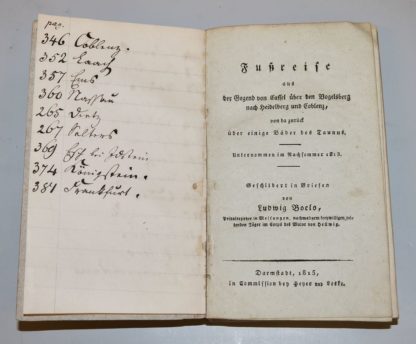 pag.
346 Coblenz.
352 Laach
357 Ems
360 Nassau
265 Dietz
267 Selters
369 Esch bei Idstein
374 Königstein.
381 Frankfurt.
Fußreise
aus
der Gegend von Cassel über den Vogelsberg
nach Heidelberg und Coblenz,
von da zurück
über einige Bäder des Taunus.
Unternommen im Nachsommer 1813.
Geschildert in Briefen
von
Ludwig Boclo,
Privatlehrer in Melsungen, nachmaligem freywilligen, reitenden Jäger im Corps des Major von Hellwig.
Darmstadt, 1815,
in Commission bey Heyer und Leske.